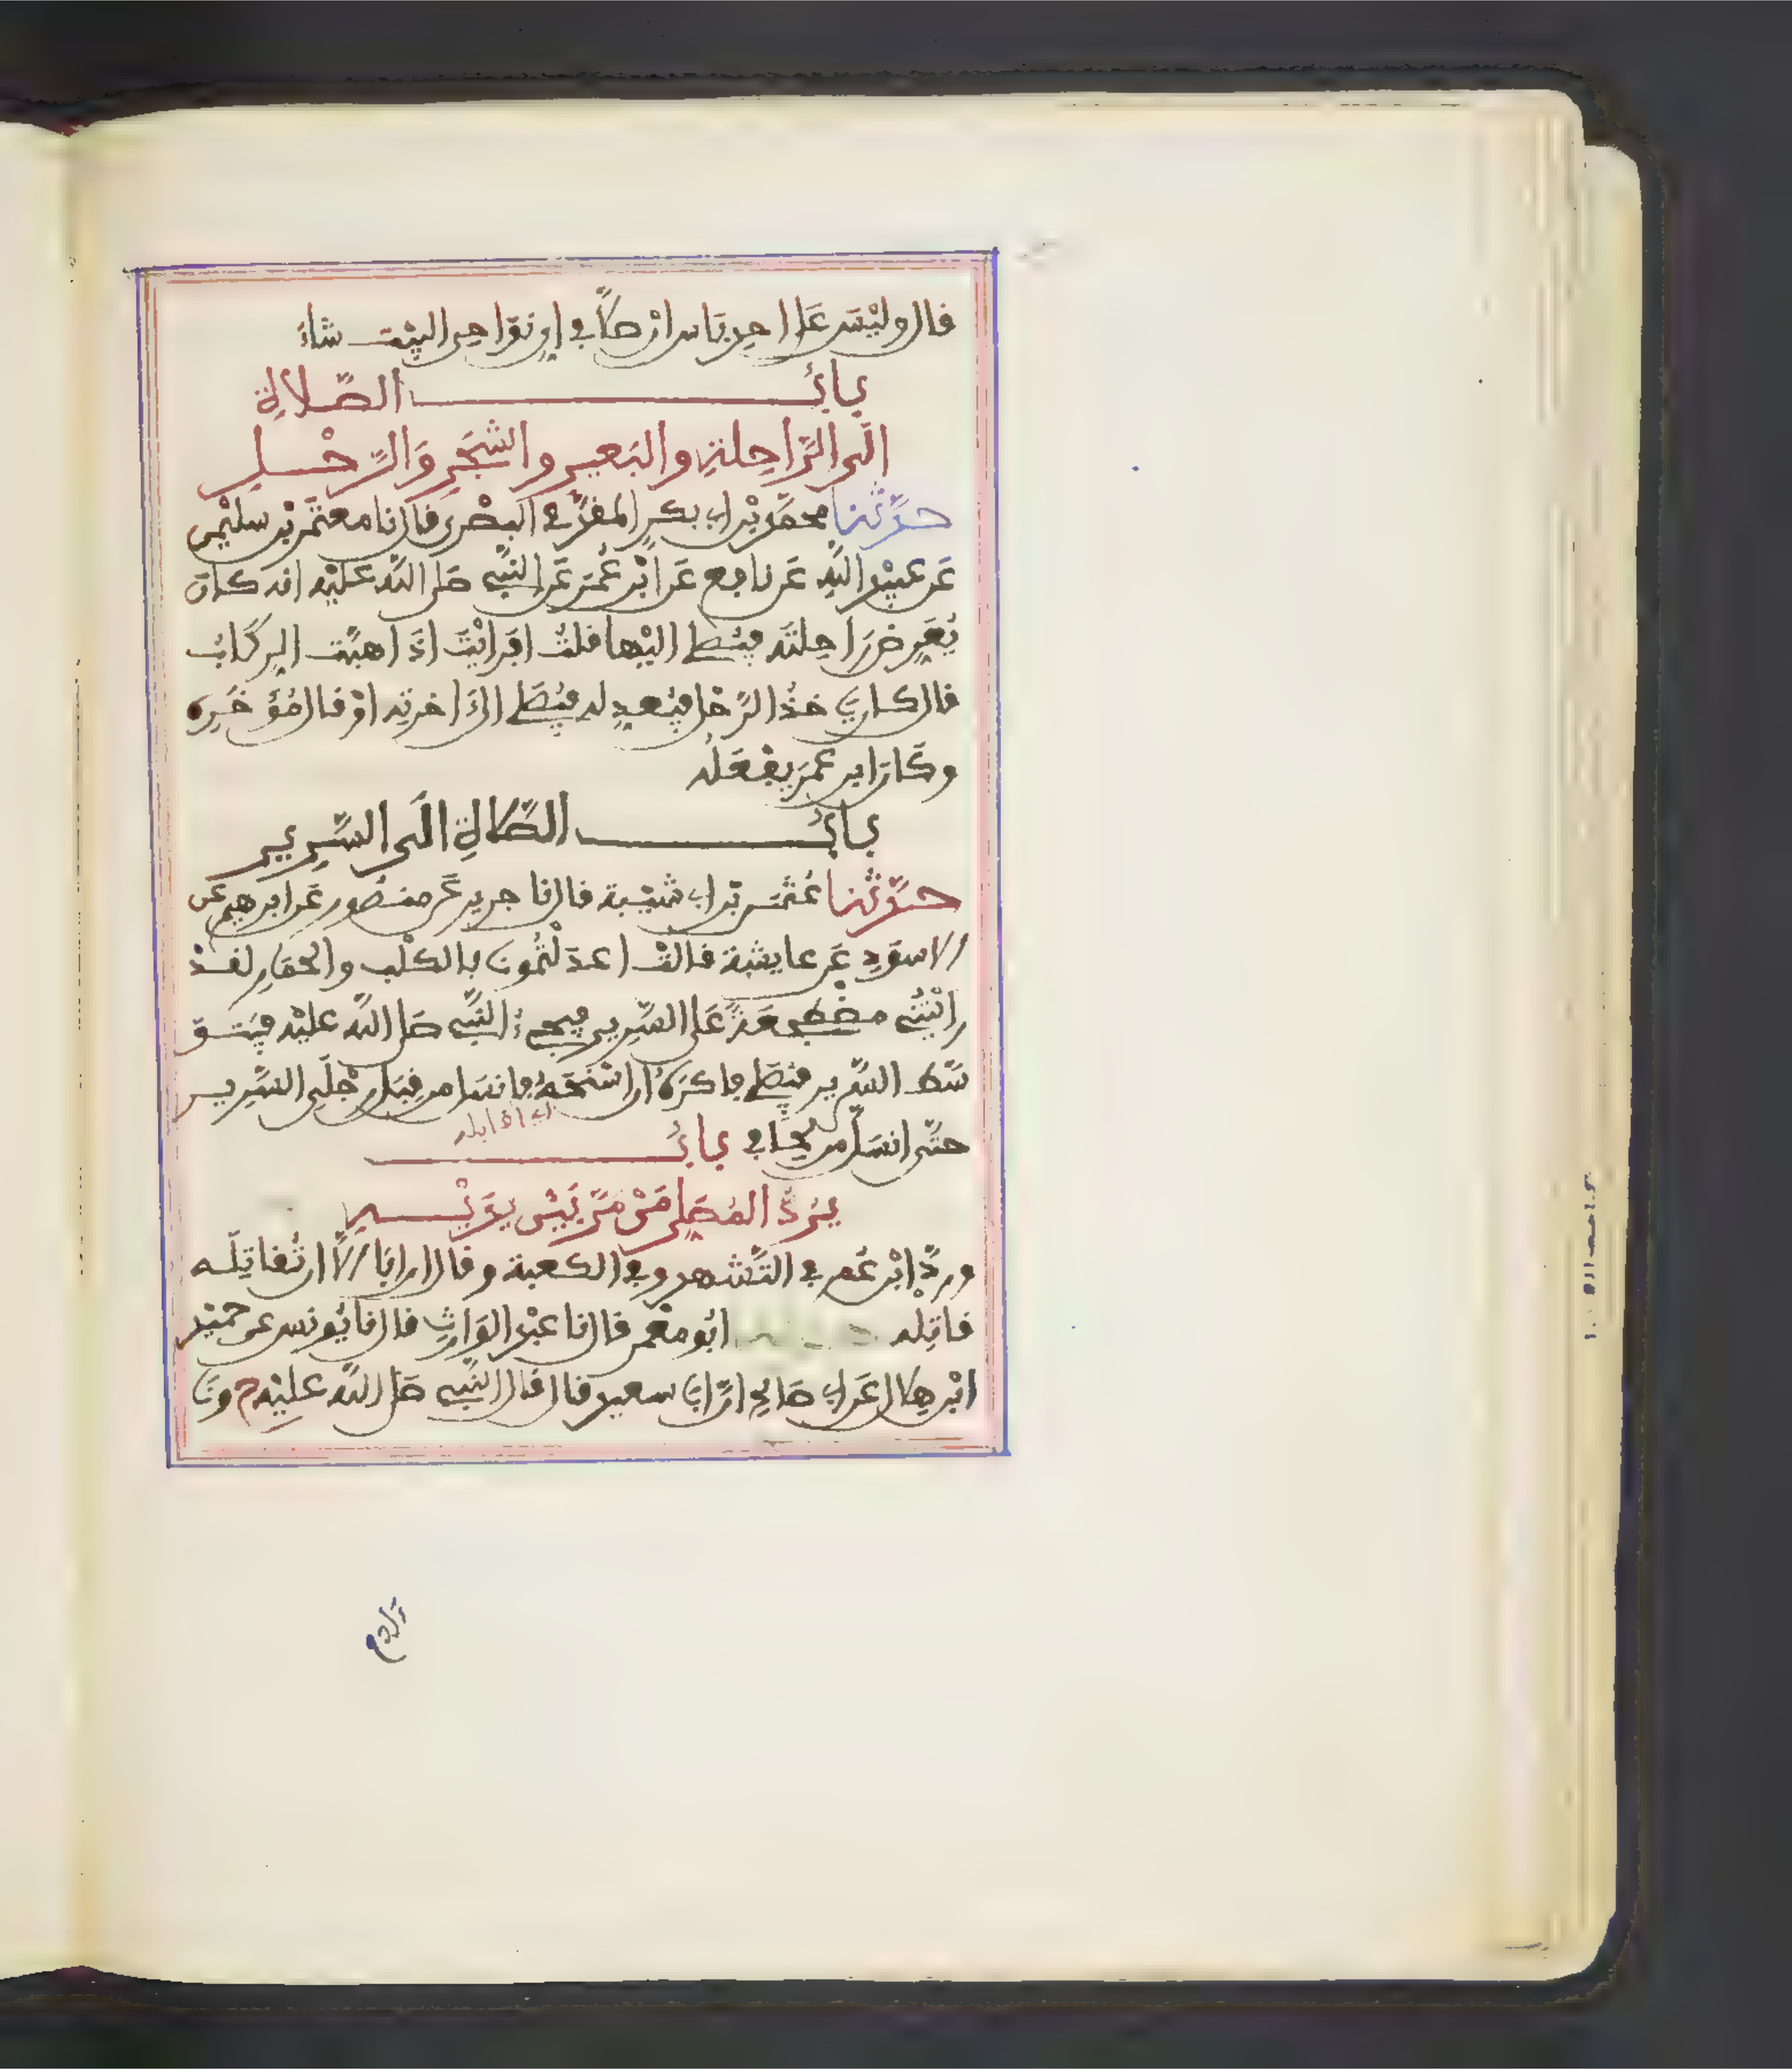 قال وليس على احدنا باس ان صلى في اي نواحي البيت شاء
باب الصلاة
الى الراحلة والبعير والشجر والرحل
حدثنا محمد بن ابي بكر المقدمي البصري قال نا معتمر بن سليمن
عن عبيد الله عن نافع عن ابن عمر عن النبي صلى الله عليه انه كان
يعرض راحلته فيصلي اليها قلت افرايت اذا هبت الركاب
قال كان ياخذ الرحل فيعدله فيصلي الى اخرته او قال مؤخره
وكان ابن عمر يفعله
باب الصلاة الى السرير
حدثنا عثمن بن ابي شيبة قال نا جرير عن منصور عن ابرهيم عن
الاسود عن عايشة قالت اعدلتمونا بالكلب والحمار لقد
رايتني مضطجعة على السرير فيجيء النبي صلى الله عليه فيتو
سط السرير فيصلي فاكره ان اسنحه فانسل من قبل رجلي السرير
حتى انسل من لحافي باب
يرد المصلي من مر بين يديه
ورد ابن عمر في التشهد وفي الكعبة وقال ان ابا الا ان تقاتله
قاتله ابو معمر قال نا عبد الوارث قال نا يونس عن حميد
ابن هلال عن ابي صالح ان ابا سعيد قال قال النبي صلى الله عليه ح ونا